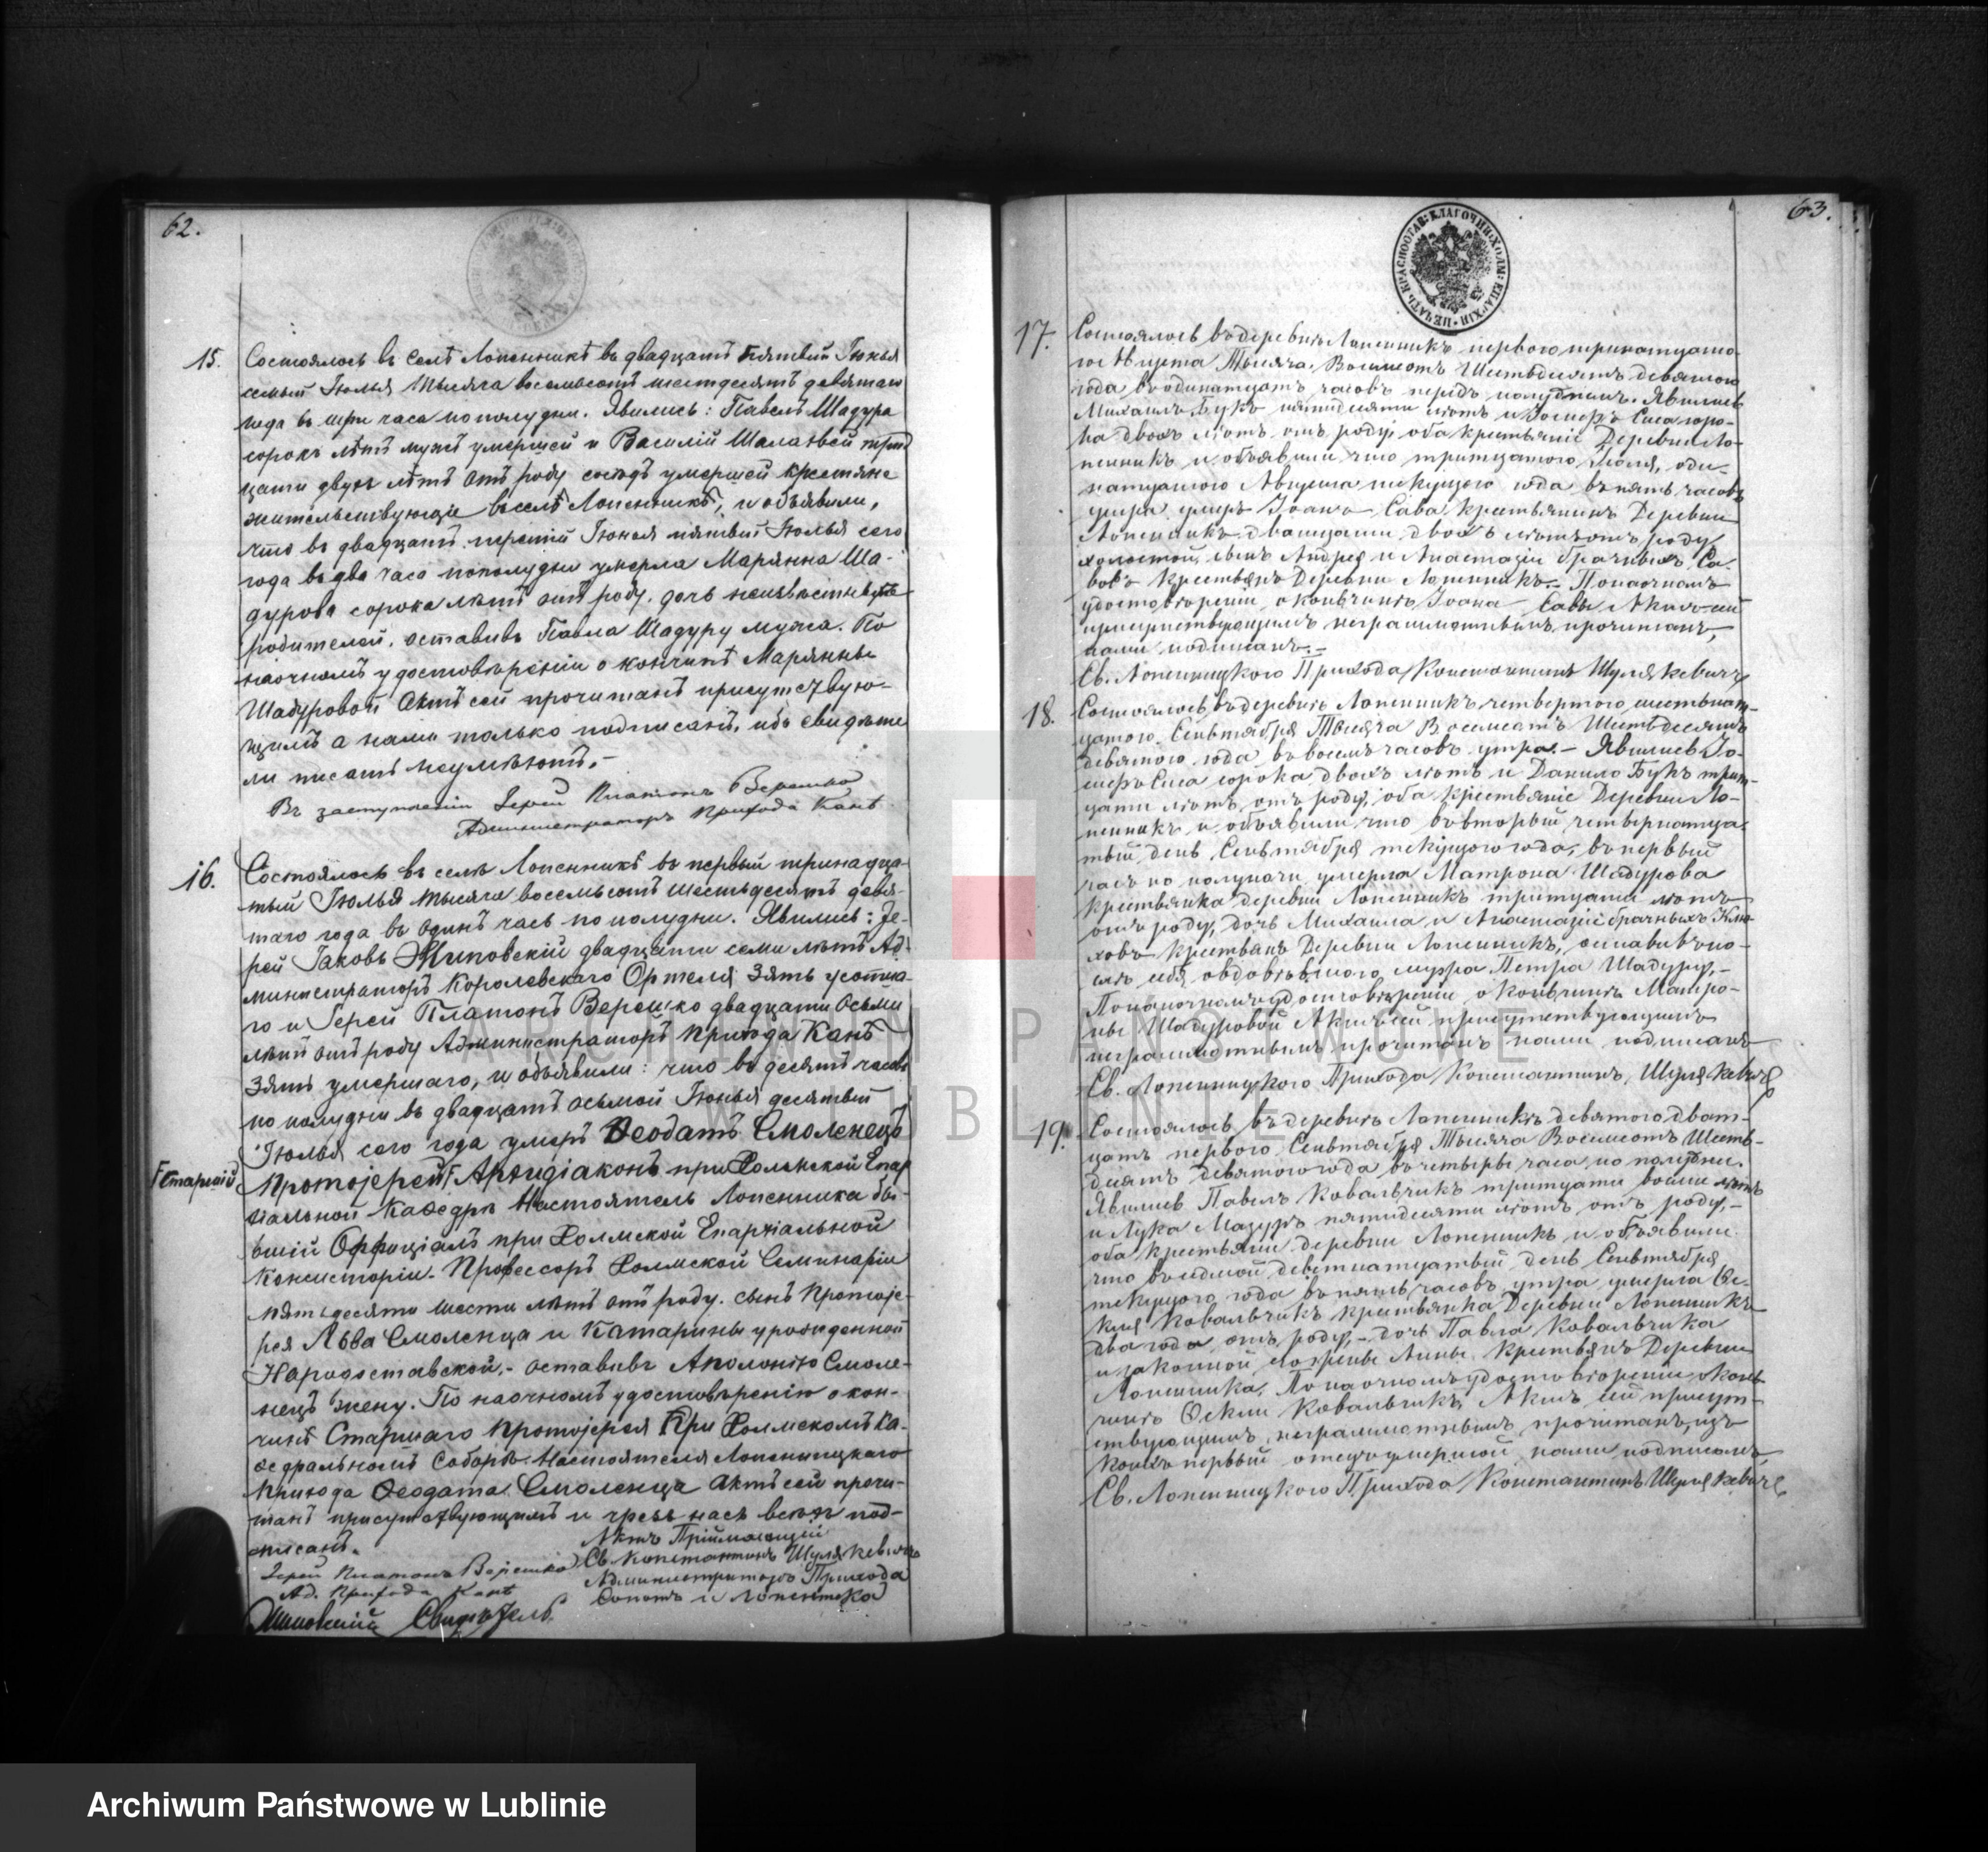 62.
15. Состоялось въ селѣ Лопенникѣ въ двадцать пятый Іюнья
седьмый Іюлья тысяча восемьсотъ шестдесятъ девятаго
года въ три часа пополудни. Явились: Павелъ Шадура
сорокъ лѣтъ мужъ умершей и Василій Шала
цати двухъ лѣтъ отъ роду сосѣдъ умершей крестяне
жительствующіе въ селѣ Лопенникѣ, и объявили,
что въ двадцать третій Іюнья пятый Іюлья сего
года въ два часа пополудни умерла Марянна Ша-
дурова сорока лѣтъ отъ роду, дочь неизвѣстныхъ
родителей, оставивъ Павла Шадуру мужа. По
наочномъ удостовѣреніи о кончинѣ Марянны
Шадуровой Актъ сей прочитанъ присутствую-
щимъ а нами только подписанъ, ибо свидѣте
ли писать неумѣютъ.-
Въ заступленіи Іерей Платонъ Верешко
Администраторъ Прихода Канѣ
16. Состоялось въ селѣ Лопенникѣ въ первый тринадца-
тый Іюлья тысяча восемьсотъ шестьдесятъ девя-
таго года въ одинъ часъ по полудни. Явились: Іе-
рей Іаковъ двадцати семи лѣтъ Ад-
министраторъ Королевскаго Ортеля зять усопша-
го и Іерей Платонъ Верешко двадцати осьми
лѣтъ отъ роду Администраторъ прихода Канѣ
зять умершаго, и объявили: что въ десять часовъ
по полудни въ двадцать осьмой Іюнья десятый
Іюлья сего года умеръ Ѳеодатъ Смоленецъ
Старшій
Протоіерей, Архидіаконъ при Холмской Епар
хіальной Каѳедрѣ Настоятель Лопенника бы-
вшій Оффиціалъ при Холмской Епархіальной
Консисторіи. Профессоръ Холмской Семинаріи
пятьдесяти шести лѣтъ отъ роду, сынъ Протоіе-
рея Льва Смоленца и Катарины урожденной
оставивъ Аполонію Смоле-
нецъ жену. По наочномъ удостовѣренію о кон-
чинѣ Старшаго Протоіерея при Холмскомъ Ка-
ѳедральномъ Соборѣ Настоятеля Лопенницкаго
прихода Ѳеодата Смоленца Актъ сей прочи-
танъ присутствующимъ и чрезъ насъ всѣхъ под-
писанъ.
Іерей Платонъ Верешко
Ад. Прихода Канѣ
Свидѣтель.
Актъ Пріймающій
Св. Константинъ Шулякевичъ
Администраторъ Прихода
и Лопенника
63.
ПЕЧАТЬ КРАСНОСТАВ: БЛАГОЧИН: ХОЛМ: ЕПАРХІИ
17. Состоялось въ деревнѣ Лопенникъ первого тринатцато-
го Августа Тысяча Восемсотъ Шестьдесятъ девятого
года въ одинатцать часовъ передъ полуднемъ. Явились
Михаилъ Букъ пятидесяти лѣтъ и Іосифъ Сиса соро-
ка двохъ лѣтъ отъ роду, оба крестьяніе Деревни Ло-
пенникъ и объявили что тритцатого Іюля, оди-
натцатого Августа текущого года въ пять часовъ
утра умеръ Іоанъ Сава крестьянинъ Деревни
Лопенникъ двацати двохъ лѣтъ отъ роду
холостой, сынъ Андрея и Анастасіи брачныхъ Са-
вовъ крестьянъ Деревни Лопенникъ.- По наочномъ
удостовѣреніи о кончинѣ Іоана Савы Актъ сей
присутствующимъ неграмотнымъ прочитанъ,
нами подписанъ.-
Св. Лопенницкого Прихода Константинъ Шулякевичъ
18. Состоялось въ деревнѣ Лопенникъ четвертого шестьнат-
цатого Сентября Тысяча Восемсотъ Шестьдесятъ
девятого года въ восемь часовъ утра.- Явились Іо-
сифъ Сиса сорока двохъ лѣтъ и Данило Букъ трит-
цати лѣтъ отъ роду, оба крестьяніе Деревни Ло-
пенникъ и объявили что въ вторый четырнатца-
тый день Сентября текущого года, въ первый
часъ по полуночи умерла Матрона Шадурова
крестьянка деревни Лопенникъ тритцати лѣтъ
отъ роду, дочь Михаила и Анастасіи брачныхъ
ховъ крестьянъ Деревни Лопенникъ, оставивъ по-
слѣ себя овдовѣвшого мужа Петра Шадуру,-
По наочномъ удостовѣреніи о кончинѣ Матро-
ны Шадуровой Актъ сей присутствующимъ
неграмотнымъ прочитанъ нами подписанъ
Св. Лопенницкого Прихода Константинъ Шулякевичъ
19. Состоялось въ деревнѣ Лопенникъ девятого дват-
цать первого Сентября Тысяча Восемсотъ Шесть-
десятъ девятого года въ четыры часа по полудни.
Явились Павелъ Ковальчикъ тритцати восми лѣтъ
и Лука Мазуръ пятидесяти лѣтъ отъ роду,-
оба крестьяни деревни Лопенникъ и объявили
что въ седмой девятнатцатый день Сентября
текущого года въ пять часовъ утра умерла Ѳе-
кля Ковальчикъ крестьянка Деревни Лопенникъ
два года отъ роду,- дочь Павла Ковальчика
и законной его жены Анны крестьянъ Деревни
Лопенника. По наочномъ удостовѣреніи о кон-
чинѣ Ѳекли Ковальчикъ Актъ сей присут-
ствующимъ неграмотнымъ прочитанъ, изъ
коихъ первый отецъ умершой, нами подписанъ
Св. Лопенницкого Прихода Константинъ Шулякевичъ
ARCHIWUM PAŃSTWOWE
W LUBLINIE
Archiwum Państwowe w Lublinie